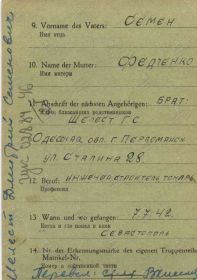 9. Vorname des Vaters: Семен
Имя отца
10. Name der Mutter: Федченко
Имя матери
11. Anschrift der nächsten Angehörigen: БРАТ:
Адрес ближайших родственников
Шелест Г С
Одесская обл. г Первомайск
ул. Сталина 28
12. Beruf: Инженер строитель токарь
Профессия
13. Wann und wo gefangen: 7.7.42.
Когда и где попал в плен
Севастополь
14. Nr. der Erkennungsmarke des eigenen Truppenteils
Matrikel-Nr.
Номер
Шелест Дмитрий Семенович